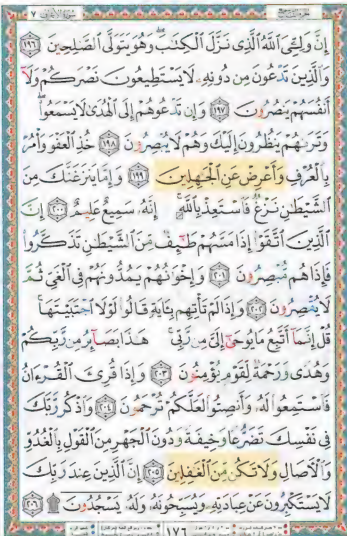 سورة الأعراف ٧
إِنَّ وَلِـِّۧيَ ٱللَّهُ ٱلَّذِي نَزَّلَ ٱلْكِتَٰبَ وَهُوَ يَتَوَلَّى ٱلصَّٰلِحِينَ ١٩٦
وَٱلَّذِينَ تَدْعُونَ مِن دُونِهِۦ لَا يَسْتَطِيعُونَ نَصْرَكُمْ وَلَآ
أَنفُسَهُمْ يَنصُرُونَ ١٩٧ وَإِن تَدْعُوهُمْ إِلَى ٱلْهُدَىٰ لَا يَسْمَعُوا۟
وَتَرَىٰهُمْ يَنظُرُونَ إِلَيْكَ وَهُمْ لَا يُبْصِرُونَ ١٩٨ خُذِ ٱلْعَفْوَ وَأْمُرْ
بِٱلْعُرْفِ وَأَعْرِضْ عَنِ ٱلْجَٰهِلِينَ ١٩٩ وَإِمَّا يَنزَغَنَّكَ مِنَ
ٱلشَّيْطَٰنِ نَزْغٌ فَٱسْتَعِذْ بِٱللَّهِ إِنَّهُۥ سَمِيعٌ عَلِيمٌ ٢٠٠ إِنَّ
ٱلَّذِينَ ٱتَّقَوْا۟ إِذَا مَسَّهُمْ طَٰٓئِفٌ مِّنَ ٱلشَّيْطَٰنِ تَذَكَّرُوا۟
فَإِذَا هُم مُّبْصِرُونَ ٢٠١ وَإِخْوَٰنُهُمْ يَمُدُّونَهُمْ فِي ٱلْغَيِّ ثُمَّ
لَا يُقْصِرُونَ ٢٠٢ وَإِذَا لَمْ تَأْتِهِم بِـَٔايَةٍ قَالُوا۟ لَوْلَا ٱجْتَبَيْتَهَا
قُلْ إِنَّمَآ أَتَّبِعُ مَا يُوحَىٰٓ إِلَيَّ مِن رَّبِّي هَٰذَا بَصَآئِرُ مِن رَّبِّكُمْ
وَهُدًى وَرَحْمَةٌ لِّقَوْمٍ يُؤْمِنُونَ ٢٠٣ وَإِذَا قُرِئَ ٱلْقُرْءَانُ
فَٱسْتَمِعُوا۟ لَهُۥ وَأَنصِتُوا۟ لَعَلَّكُمْ تُرْحَمُونَ ٢٠٤ وَٱذْكُر رَّبَّكَ
فِي نَفْسِكَ تَضَرُّعًا وَخِيفَةً وَدُونَ ٱلْجَهْرِ مِنَ ٱلْقَوْلِ بِٱلْغُدُوِّ
وَٱلْءَاصَالِ وَلَا تَكُن مِّنَ ٱلْغَٰفِلِينَ ٢٠٥ إِنَّ ٱلَّذِينَ عِندَ رَبِّكَ
لَا يَسْتَكْبِرُونَ عَنْ عِبَادَتِهِۦ وَيُسَبِّحُونَهُۥ وَلَهُۥ يَسْجُدُونَ ۩ ٢٠٦
١٧٦